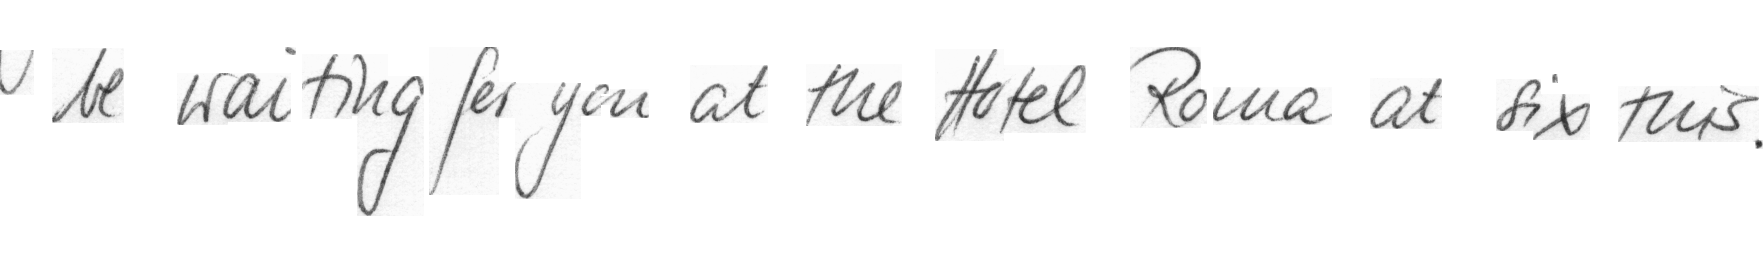 be waiting for you at the Hotel Roma at six this.